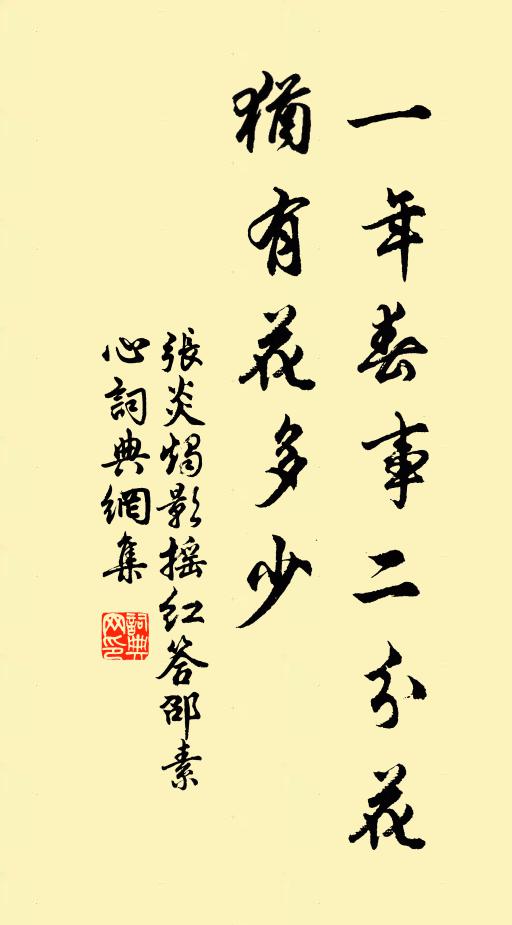 一年春事二分花
猶有花多少
張炎燭影搖紅答邵素
心詞典網集
詞典
网印